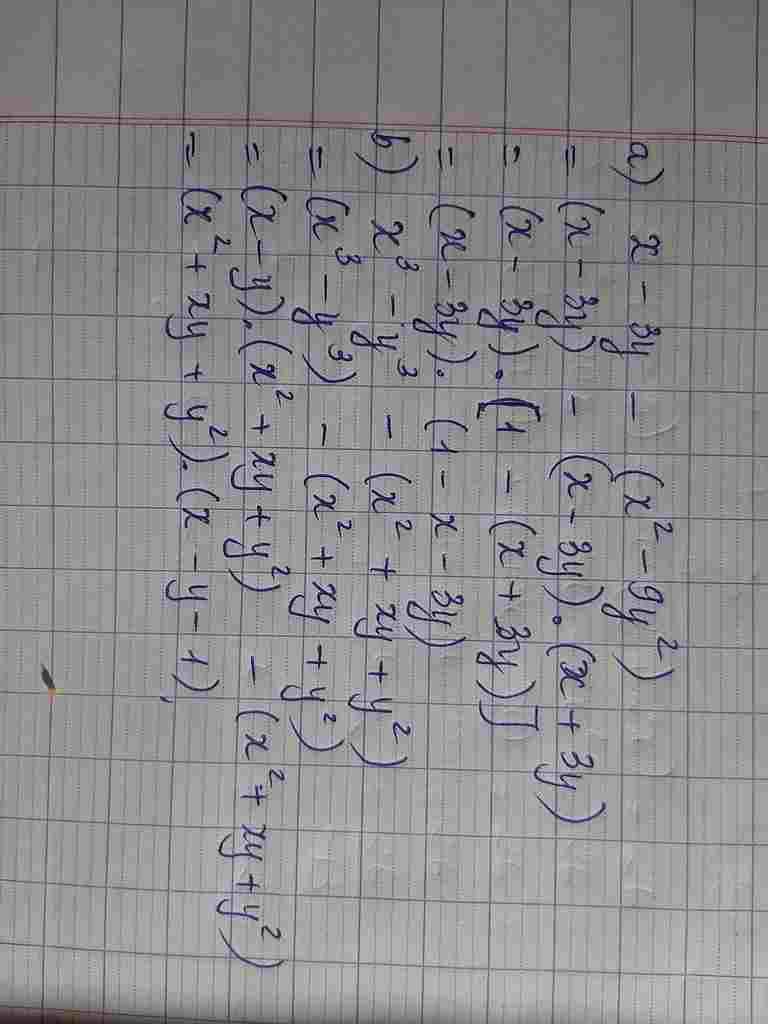 a) x - 3y - (x² - 9y²)
= (x - 3y) - (x - 3y).(x + 3y)
= (x - 3y).[1 - (x + 3y)]
= (x - 3y).(1 - x - 3y)
b) x³ - y³ - (x² + xy + y²)
= (x³ - y³) - (x² + xy + y²)
= (x - y).(x² + xy + y²) - (x² + xy + y²)
= (x² + xy + y²).(x - y - 1),